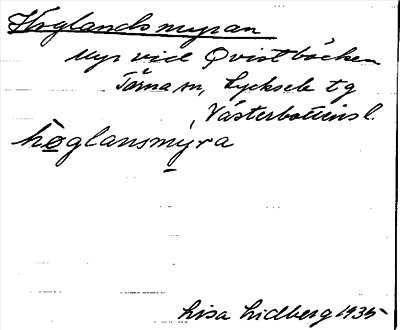 Höglandsmyran
Myr vid Qvistbäcken
Tärna sn, Lycksele tg
Västerbottensl.
høglansmyra
Lisa Lidberg 1935